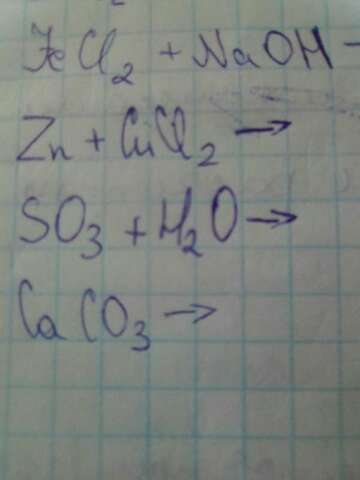 FeCl₂ + NaOH →
Zn + CuCl₂ →
SO₃ + H₂O →
CaCO₃ →